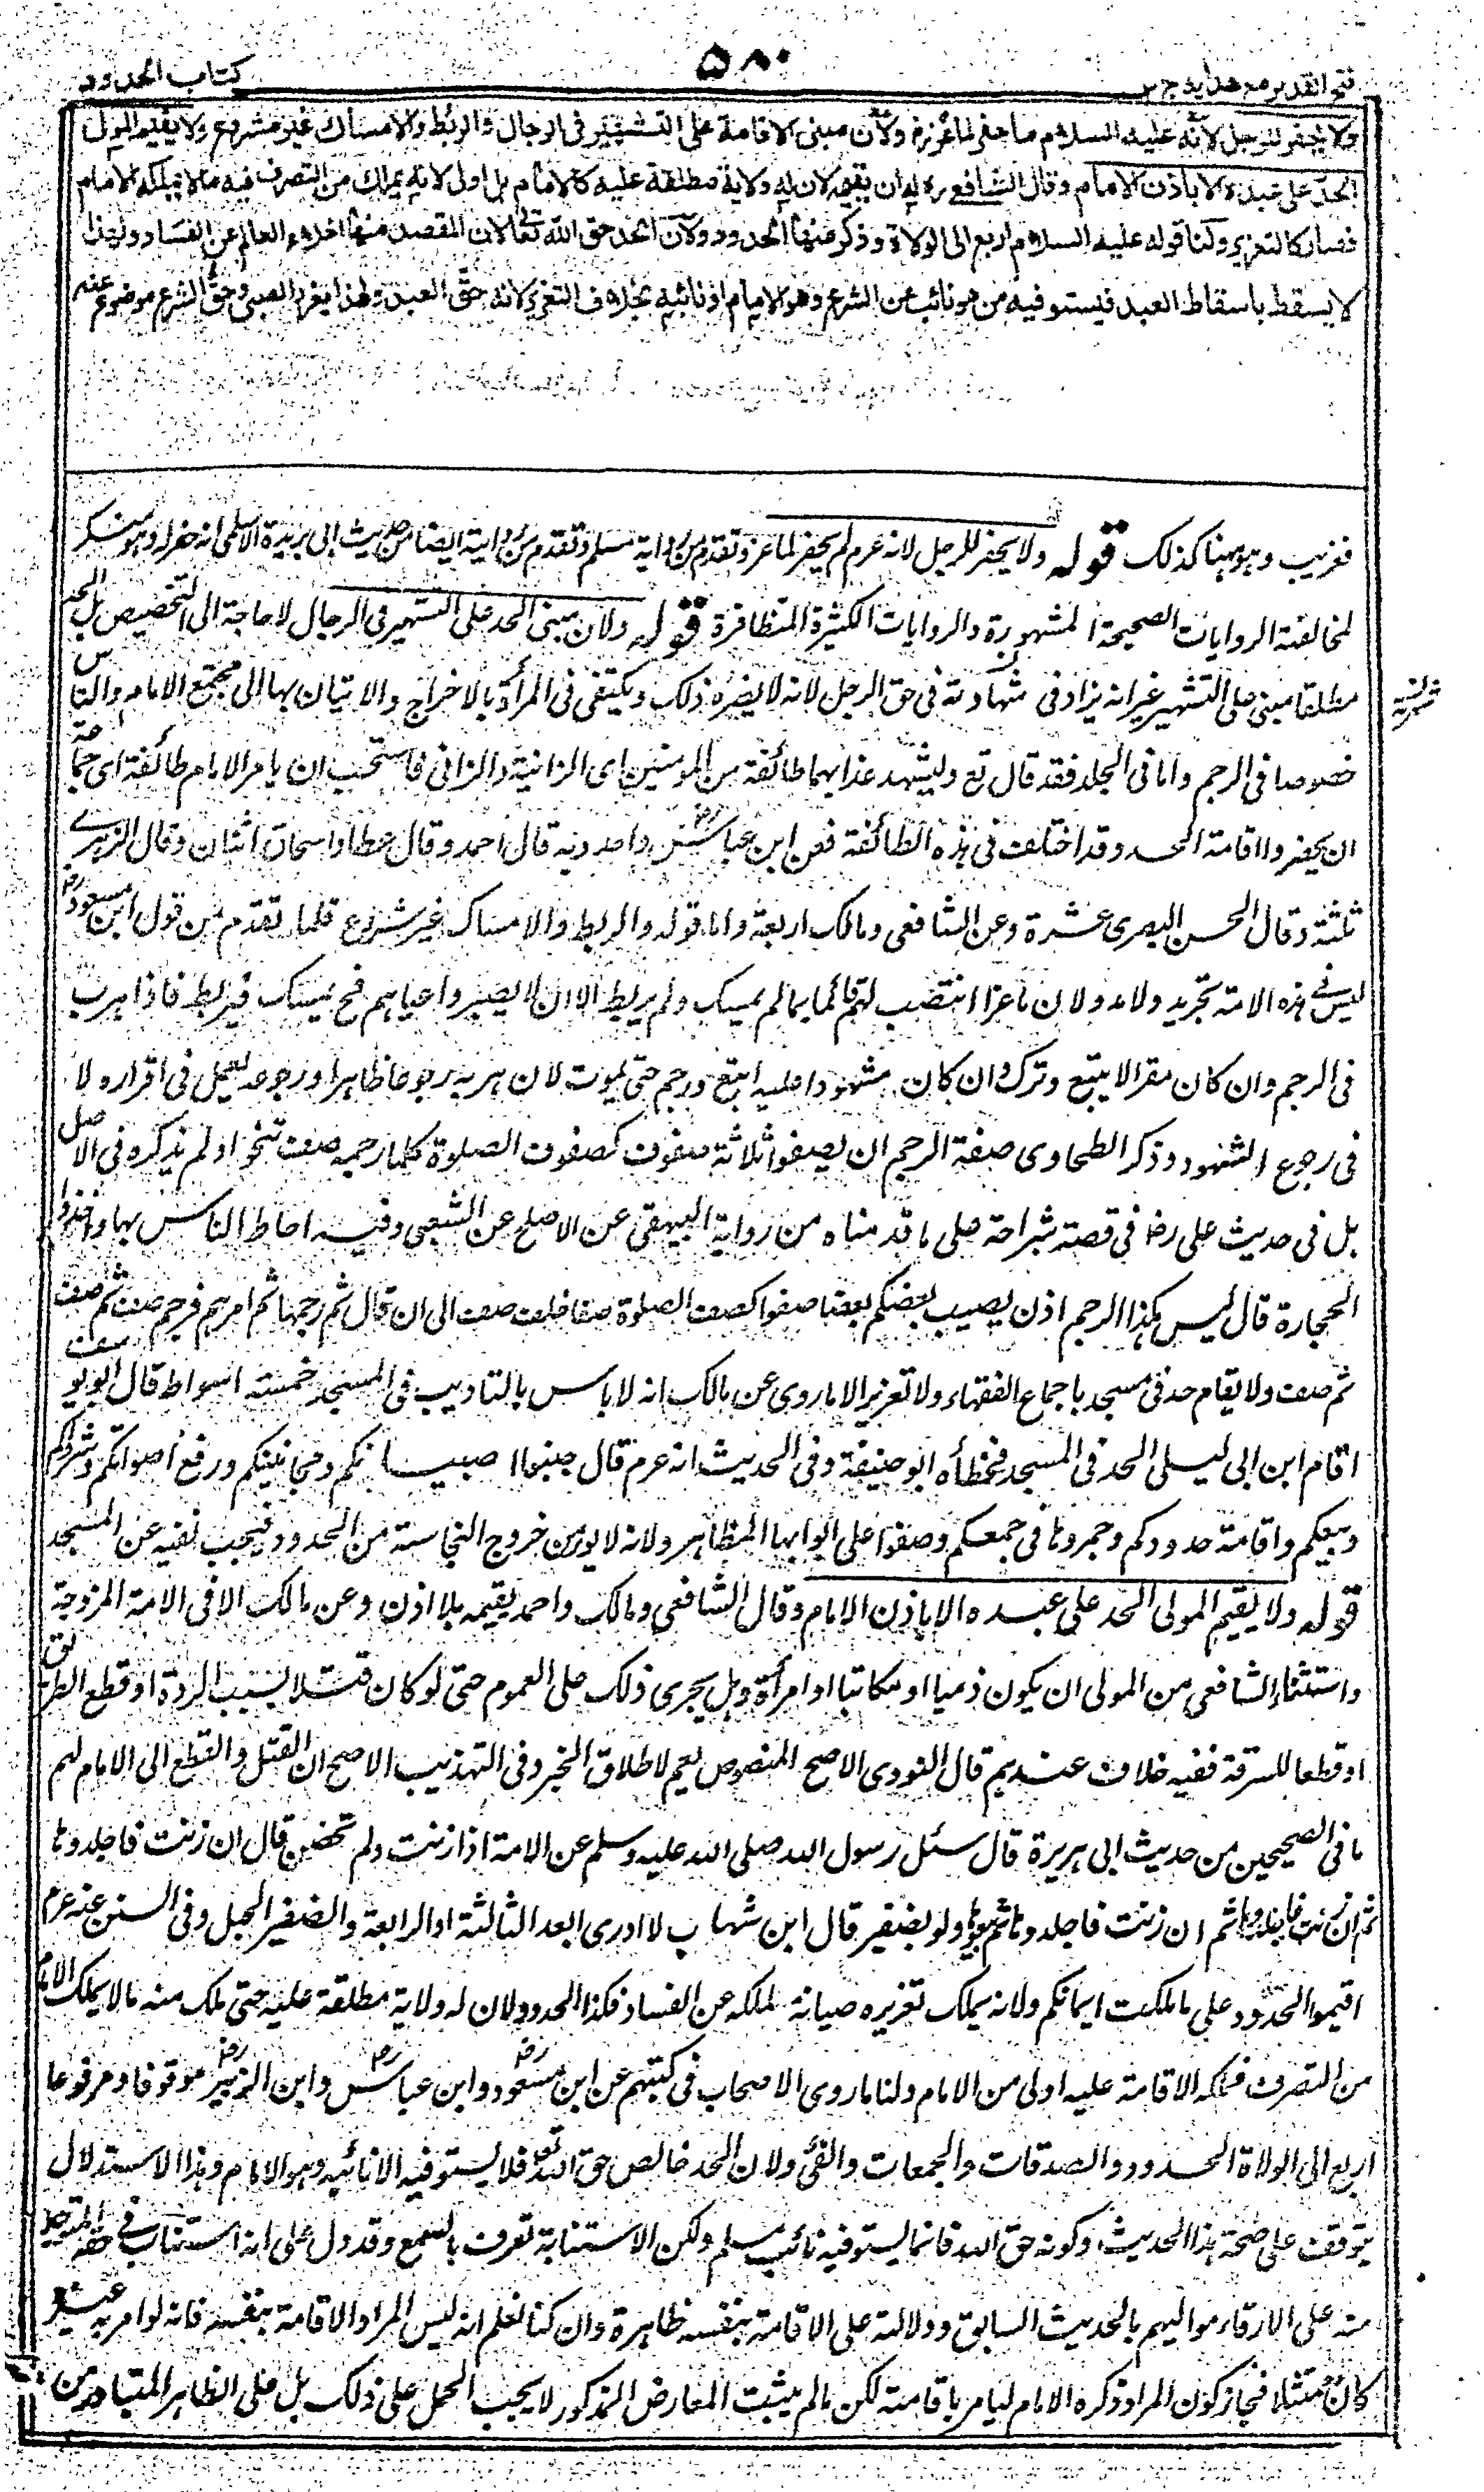 فتح القدير مع هدايه ج ٢
۵۸۰
كتاب الحدود
ولا يحفر للرجل لانه عليه السلام ما حفر لماعز رض ولان مبنى الاقامة على التشهير فى الرجال والربط والامساك غير مشروع ولا يقيم المولى
الحد على عبده الا باذن الامام وقال الشافعى ره له ان يقيمه لان له ولاية مطلقة عليه كالامام بل اولى لانه يملك من التصرف فيه ما لا يملكه الامام
فصار كالتعزير ولنا قوله عليه السلام اربع الى الولاة وذكر منها الحدود ولان الحد حق الله تعالى لان المقصد منها اخلاء العالم عن الفساد ولهذا
لا يسقط باسقاط العبد فيستوفيه من هو نائب عن الشرع وهو الامام او نائبه بخلاف التعزير لانه حق العبد ولهذا يعزر الصبى وحق الشرع موضوع عنه
فغريب وهو ههنا كذلك قوله ولا يحفر للرجل لانه عرم لم يحفر لماعز وتقدم من رواية مسلم وتقدم من رواية ايضا من حديث ابى بريدة الاسلمى انه حفر له وهو منكر
لمخالفة الروايات الصحيحة المشهورة والروايات الكثيرة المتظافرة قوله ولان مبنى الحد على التشهير فى الرجال لا حاجة الى التخصيص بل الحد
مطلقا مبنى على التشهير غير انه يزاد فى شهادته فى حق الرجل لانه لا يضره ذلك ويكتفى فى المرأة بالاخراج والاتيان بها الى مجتمع الامام والناس
خصوصا فى الرجم واما فى الجلد فقد قال تع وليشهد عذابهما طائفة من المومنين اى الزانية والزانى فاستحب ان يامر الامام طائفة اى جماعة
ان يحضروا اقامة الحد وقد اختلف فى هذه الطائفة فعن ابن عباس رض واحد وبه قال احمد وقال عطا واسحاق اثنان وقال الزهرى
ثلثة وقال الحسن البصرى عشرة وعن الشافعى ومالك اربعة واما قوله والربط والامساك غير مشروع فلما تقدم من قول ابن مسعود رض
ليس فى هذه الامة تجريد ولا مد ولان ماعزا انتصب لهم قائما لم يمسك ولم يربط الا ان لا يصبر واعياهم فح يمسك فيربط فاذا هرب
فى الرجم وان كان مقرا لا يتبع وترك وان كان مشهودا عليه اتبع ورجم حتى يموت لان هربه رجوعا ظاهرا ورجوعه يعمل فى اقراره لا
فى رجوع الشهود وذكر الطحاوى صفة الرجم ان يصفوا ثلاثة صفوف كصفوف الصلوة كلما رجمه صف تنحوا ولم يذكره فى الاصل
بل فى حديث على رض فى قصة شراحة على ما قدمناه من رواية البيهقى عن الاصلح عن الشعبى وفيه احاط الناس بها واخذوا
الحجارة قال ليس هكذا الرجم اذن يصيب بعضكم بعضا صفوا كصف الصلوة صفا خلف صف الى ان قال ثم رجمها ثم امرهم فرجم صف ثم صف
ثم صف ولا يقام حد فى مسجد باجماع الفقهاء ولا تعزير الا ما روى عن مالك انه لا باس بالتاديب فى المسجد خمسة اسواط قال ابو يوسف
اقام ابن ابى ليلى الحد فى المسجد فخطأه ابو حنيفة وفى الحديث انه عرم قال جنبوا صبيانكم ومجانينكم ورفع اصواتكم وشراكم
وبيعكم واقامة حدودكم وجمروها فى جمعكم وصفوا على ابوابها المظاهر ولانه لا يومن خروج النجاسة من الحدود فيجب نفيه عن المسجد
قوله ولا يقيم المولى الحد على عبده الا باذن الامام وقال الشافعى ومالك واحمد يقيمه بلا اذن وعن مالك الا فى الامة المزوجة
واستثناء الشافعى من المولى ان يكون ذميا او مكاتبا او امرأة وهل يجرى ذلك على العموم حتى لو كان قتلا بسبب الردة او قطع الطريق
او قطعا للسرقة ففيه خلاف عندهم قال النووى الاصح المنصوص نعم لاطلاق الخبر وفى التهذيب الاصح ان القتل والقطع الى الامام لهم
ما فى الصحيحين من حديث ابى هريرة قال سئل رسول الله صلى الله عليه وسلم عن الامة اذا زنت ولم تحصن قال ان زنت فاجلدوها
ثم ان زنت فاجلدوها ثم ان زنت فاجلدوها ثم بيعوها ولو بضفير قال ابن شهاب لا ادرى ابعد الثالثة او الرابعة والضفير الحبل وفى السنن عنه عرم
اقيموا الحدود على ما ملكت ايمانكم ولانه يملك تعزيره صيانة لملكه عن الفساد فكذا الحدود ولان له ولاية مطلقة عليه حتى ملك منه ما لا يملك الامام
من التصرف فملكه الاقامة عليه اولى من الامام ولنا ما روى الاصحاب فى كتبهم عن ابن مسعود رض وابن عباس رض وابن الزبير رض موقوفا ومرفوعا
اربع الى الولاة الحدود والصدقات والجمعات والفئ ولان الحد خالص حق الله تعالى فلا يستوفيه الا نائبه وهو الامام وهذا الاستدلال
يتوقف على صحة هذا الحديث وكونه حق الله فانما يستوفيه نائبه مسلم ولكن الاستنابة تعرف بالسمع وقد دل على انه استناب فى حقه المتوجه
منه على الارقاء مواليهم بالحديث السابق ودلالته على الاقامة بنفسه ظاهرة وان كنا نعلم انه ليس المراد الاقامة بنفسه فانه لو امر به غيره
كان ممتثلا فجاز كون المراد ذكره الامام ليامر باقامته لكن ما لم يثبت المعارض المذكور لا يجب الحمل على ذلك بل على الظاهر المتبادر من